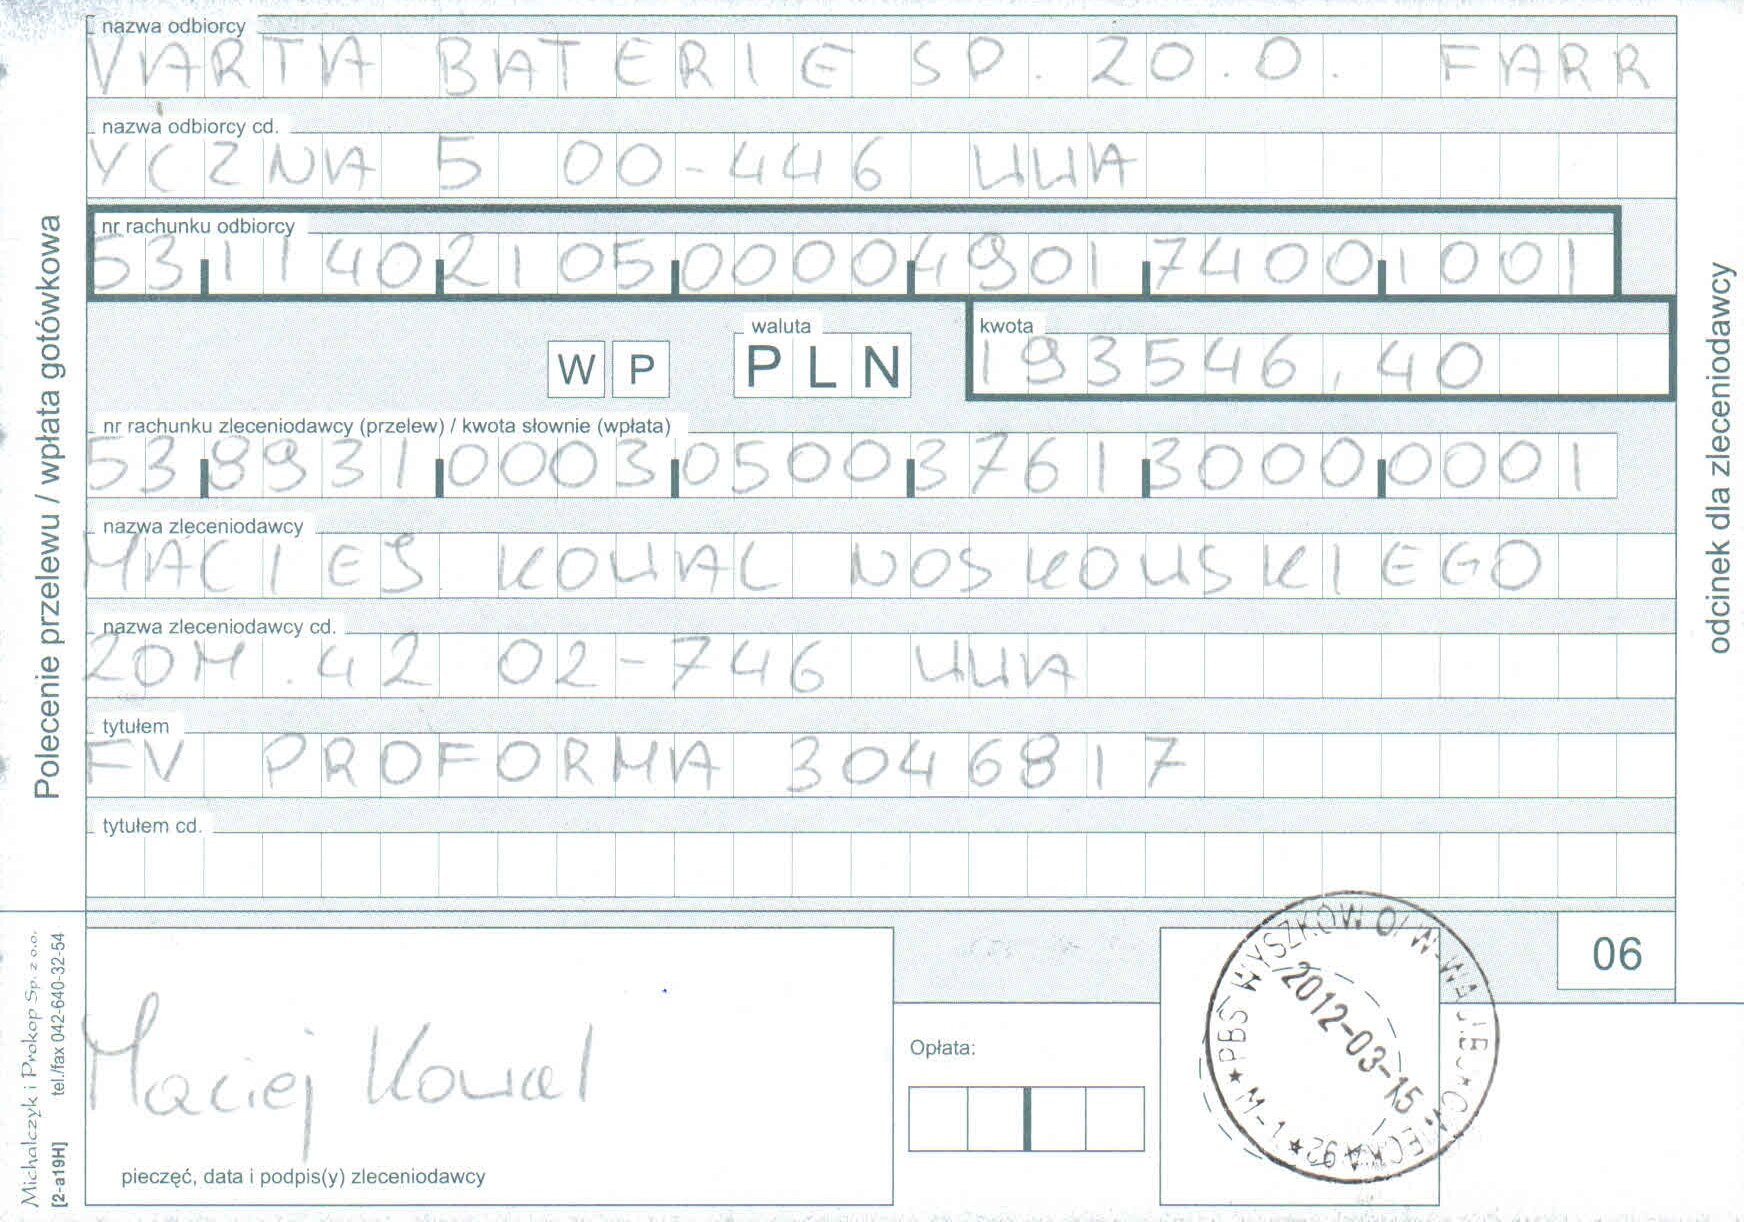 nazwa odbiorcy
VARTA BATERIE SP. ZO.O. FABR
nazwa odbiorcy cd.
YCZNA 5 00-446 WWA
nr rachunku odbiorcy
53 1140 2105 0000 4901 7400 1001
W P
waluta
PLN
kwota
193546,40
nr rachunku zleceniodawcy (przelew) / kwota słownie (wpłata)
53 8931 0003 0500 3761 3000 0001
nazwa zleceniodawcy
MACIEJ KOWAL NOSKOWSKIEGO
nazwa zleceniodawcy cd.
20M.42 02-746 WWA
tytułem
FV PROFORMA 3046817
tytułem cd.
Polecenie przelewu / wpłata gotówkowa
odcinek dla zleceniodawcy
06
Maciej Kowal
pieczęć, data i podpis(y) zleceniodawcy
Opłata:
PBS WYSZKÓW O/W-WA
2012-03-15
92 * M-1 *
Michalczyk i Prokop Sp. z o.o.
tel./fax 042-640-32-54
[2-a19H]